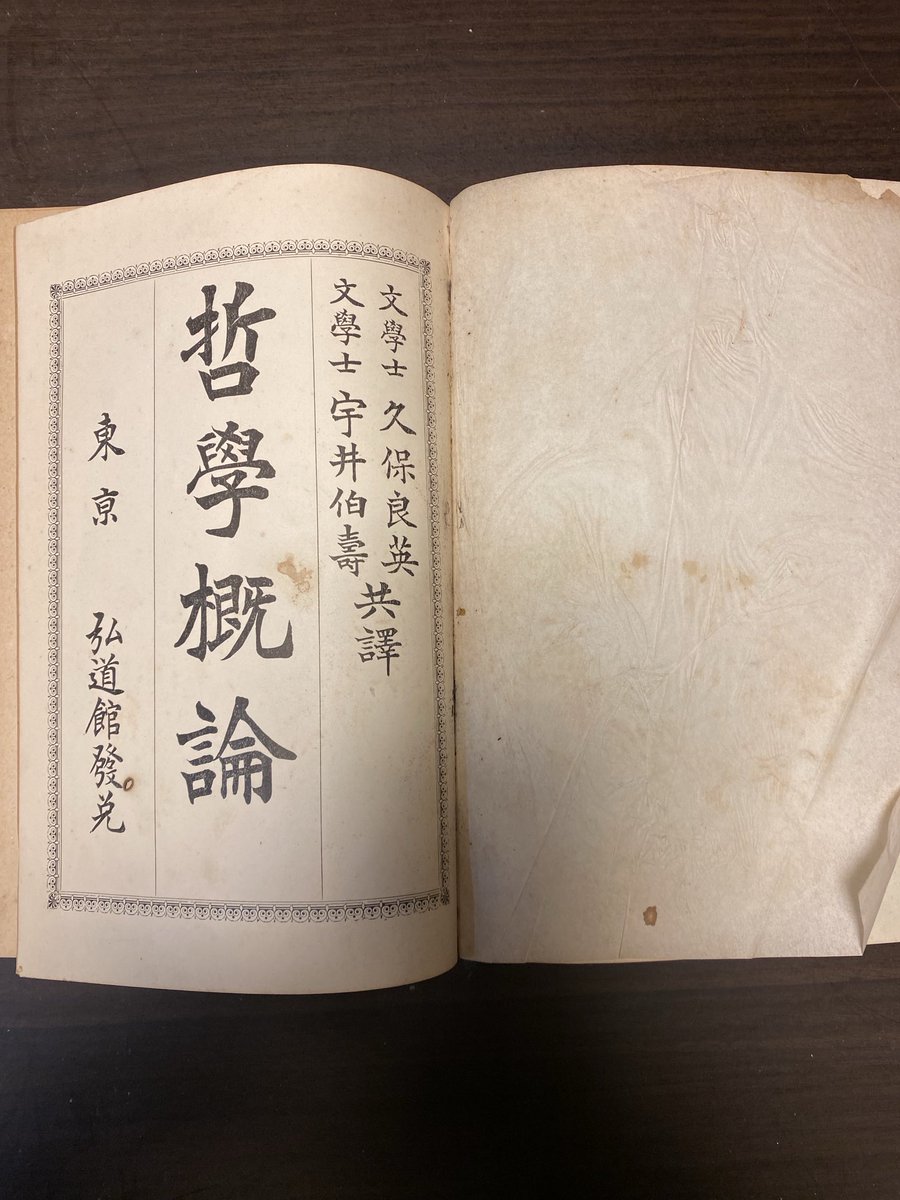 文學士 久保良英
文學士 宇井伯壽
共譯
哲學概論
東京 弘道館發兌